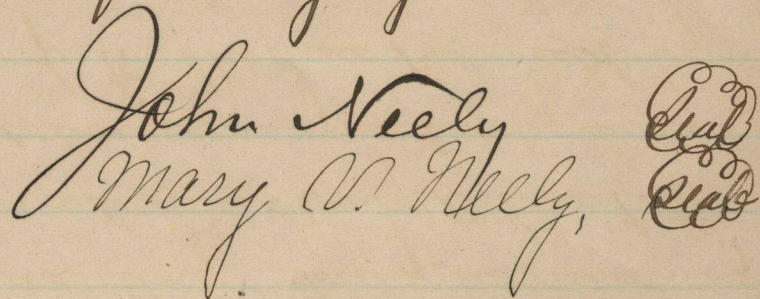 John Neely seal
Mary V. Neely, seal